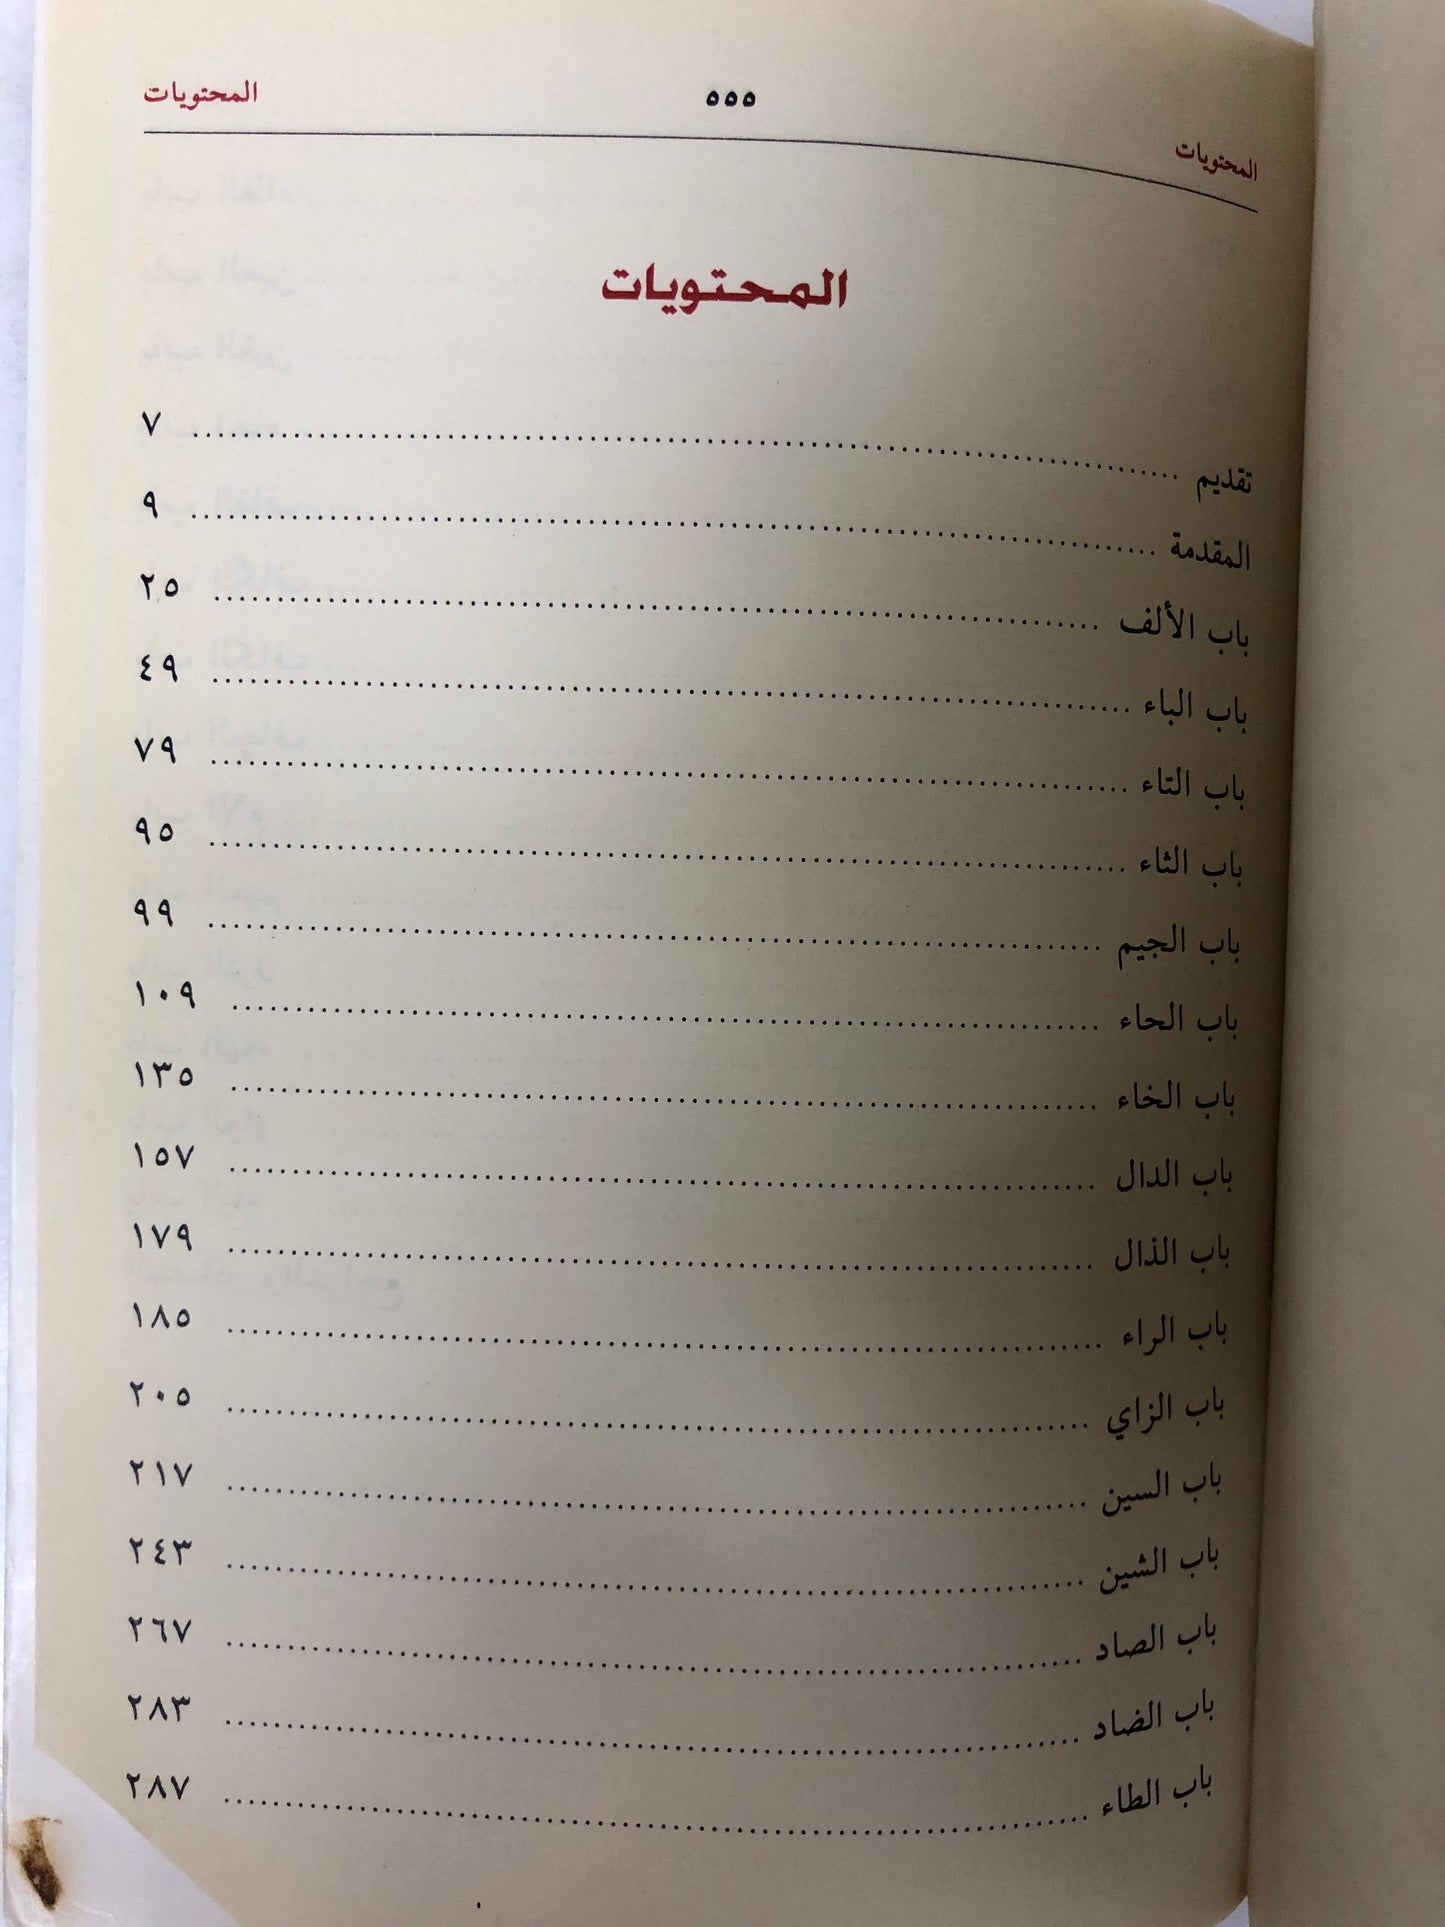 المحتويات ٥٥٥ المحتويات
المحتويات
تقديم ........ ٧
المقدمة ........ ٩
باب الألف ........ ٢٥
باب الباء ........ ٤٩
باب التاء ........ ٧٩
باب الثاء ........ ٩٥
باب الجيم ........ ٩٩
باب الحاء ........ ١٠٩
باب الخاء ........ ١٣٥
باب الدال ........ ١٥٧
باب الذال ........ ١٧٩
باب الراء ........ ١٨٥
باب الزاي ........ ٢٠٥
باب السين ........ ٢١٧
باب الشين ........ ٢٤٣
باب الصاد ........ ٢٦٧
باب الضاد ........ ٢٨٣
باب الطاء ........ ٢٨٧